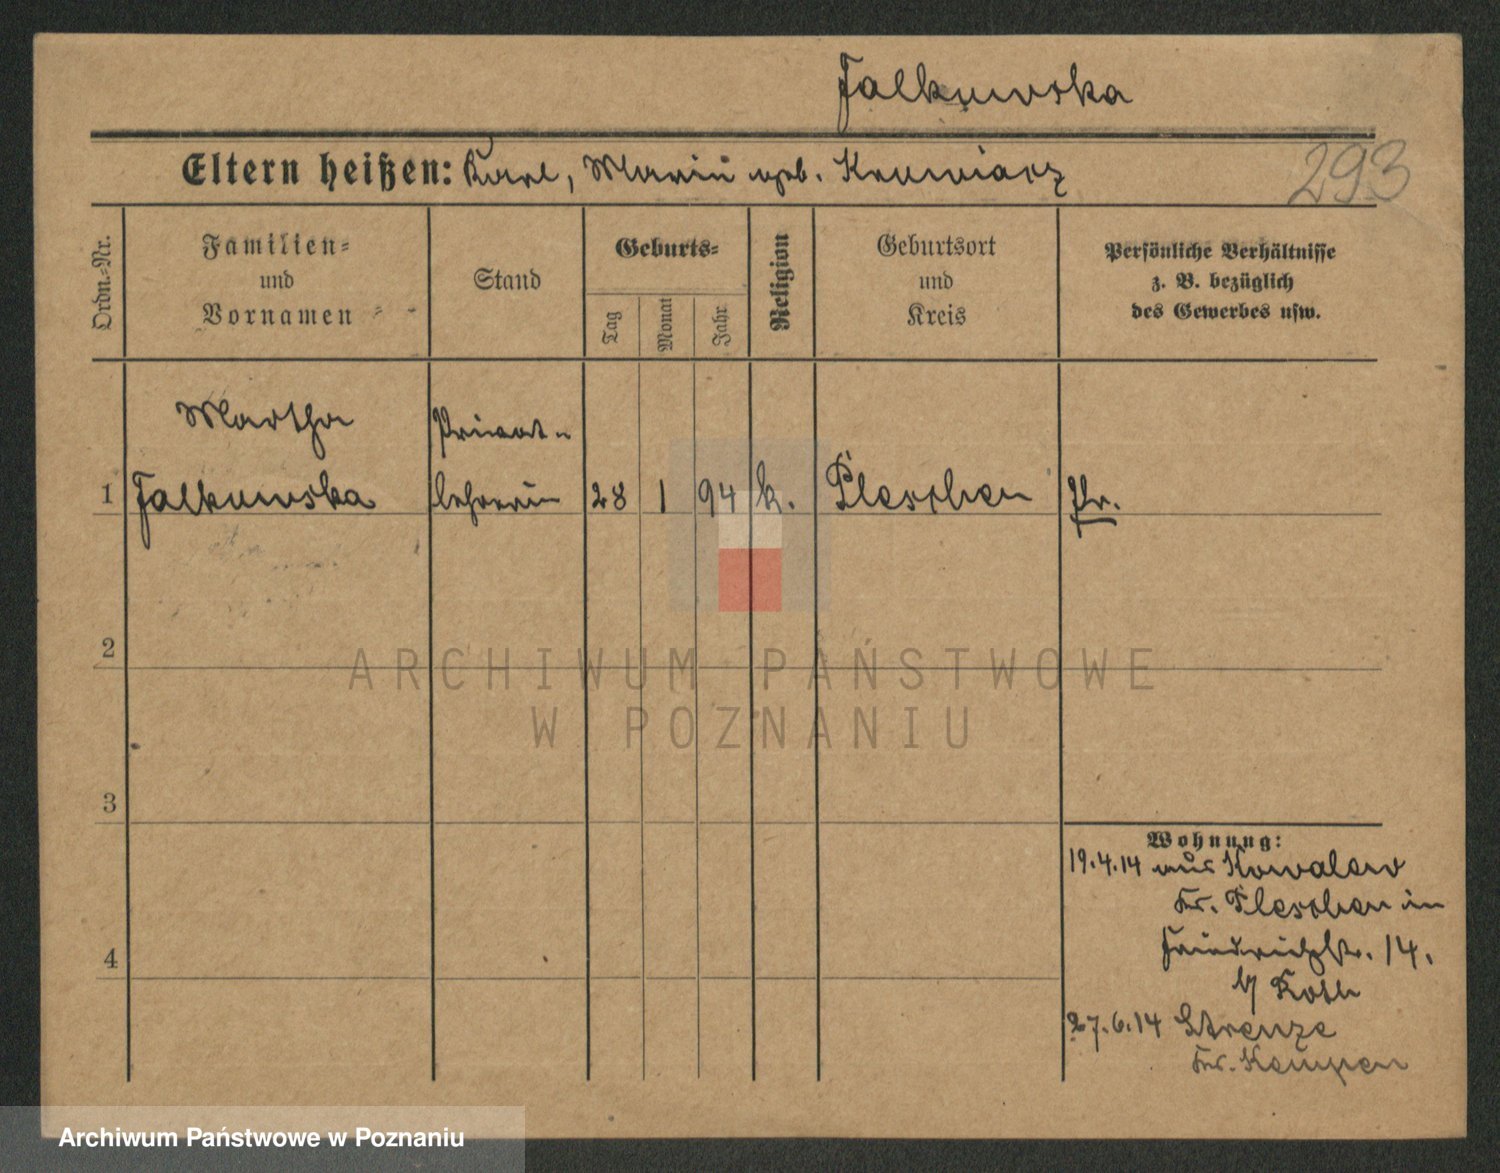 Falkowska
Eltern heißen: Karl, Marie geb.
293
Ordn.=Nr.
Familien=
und
Vornamen
Stand
Geburts=
Tag
Monat
Jahr
Religion
Geburtsort
und
Kreis
Persönliche Verhältnisse
z. B. bezüglich
des Gewerbes usw.
Martha
Privat=
1 Falkowska lehrerin 28 1 94 k. Pleschen Pr.
2
3
4
Wohnung:
19.4.14 aus Kowalew
Kr. Pleschen in
Friedrichstr. 14.
b/ Koth
27.6.14 Strenze
Kr. Kempen
ARCHIWUM PAŃSTWOWE
W POZNANIU
Archiwum Państwowe w Poznaniu